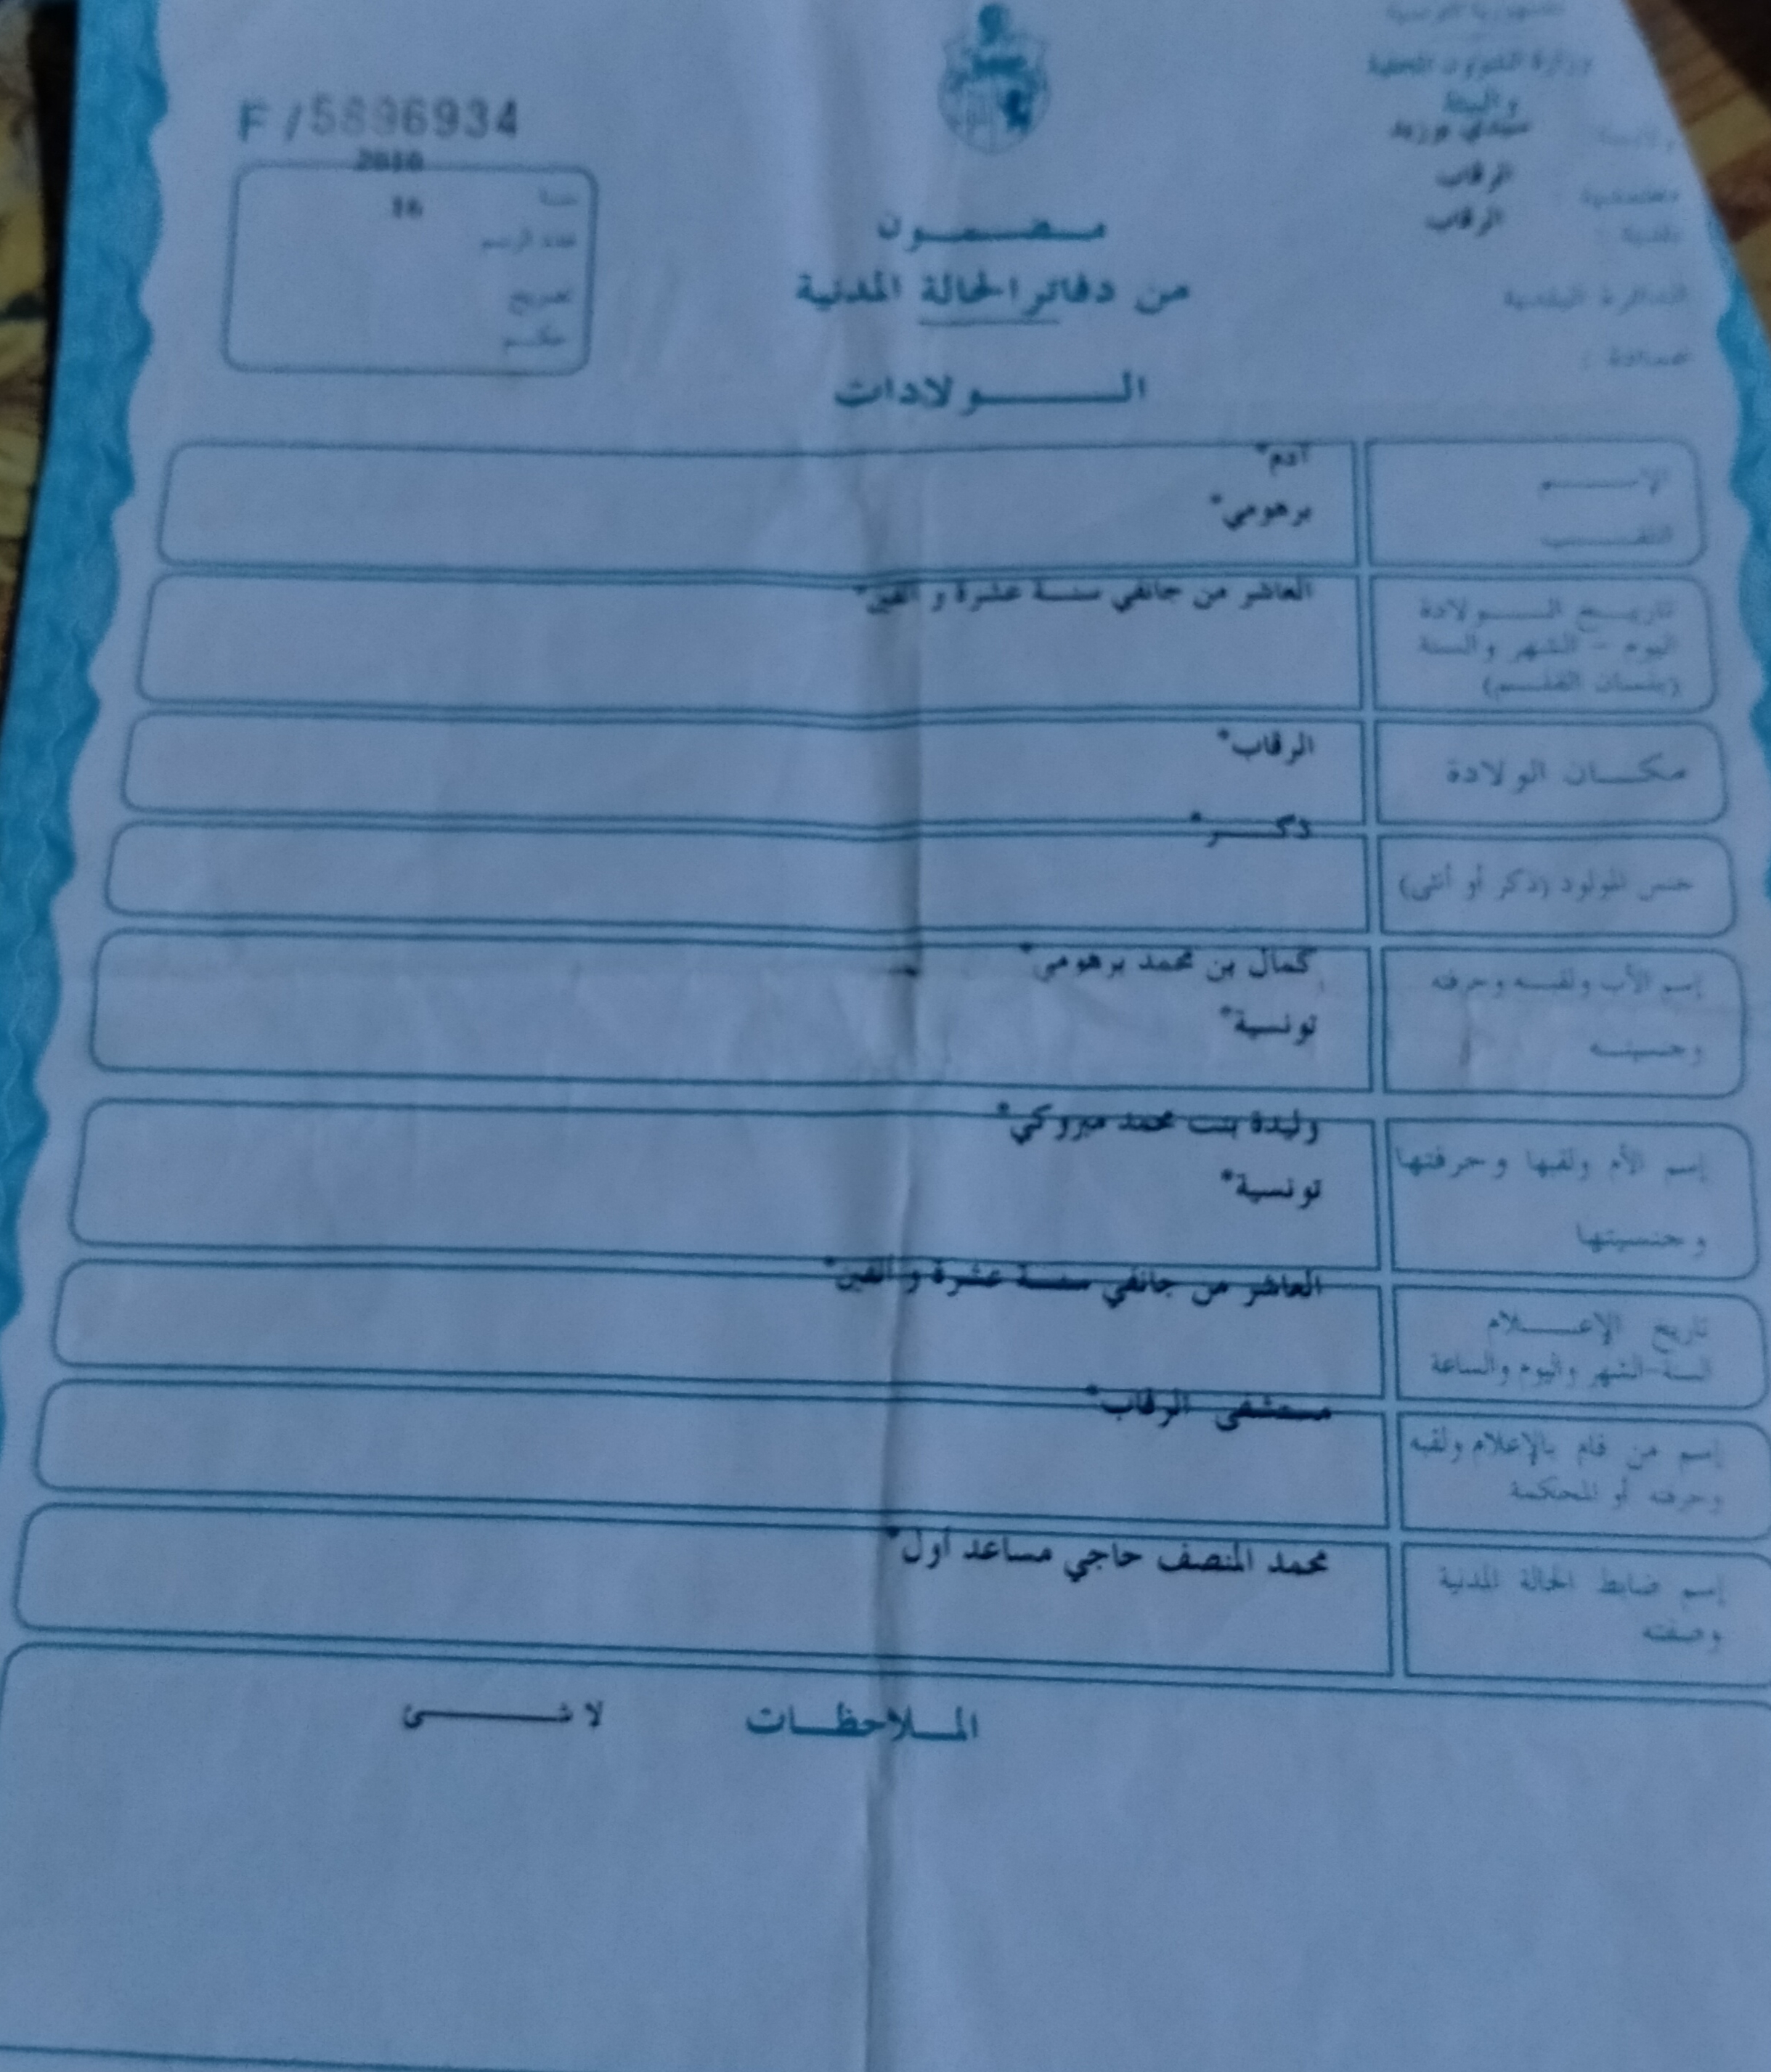 الجمهورية التونسية
وزارة الشؤون المحلية
والبيئة
ولاية : سيدي بوزيد
معتمدية : الرقاب
بلدية : الرقاب
الدائرة البلدية
عمادة :
F / 5896934
2010
سنة 16
عدد الرسم
تصريح
حكم
مضمون
من دفاتر الحالة المدنية
الولادات
الإسم آدم*
اللقب برهومي*
تاريخ الولادة العاشر من جانفي سنة عشرة و ألفين*
اليوم - الشهر والسنة
(بلسان القلم)
مكان الولادة الرقاب*
جنس المولود (ذكر أو أنثى) ذكر*
إسم الأب ولقبه وحرفته كمال بن محمد برهومي*
وجنسيته تونسية*
إسم الأم ولقبها وحرفتها وليدة بنت محمد مبروكي*
وجنسيتها تونسية*
تاريخ الإعلام العاشر من جانفي سنة عشرة و ألفين*
السنة-الشهر واليوم والساعة
إسم من قام بالإعلام ولقبه مستشفى الرقاب*
وحرفته أو المحكمة
إسم ضابط الحالة المدنية محمد المنصف حاجي مساعد أول*
وصفته
الملاحظات لا شئ